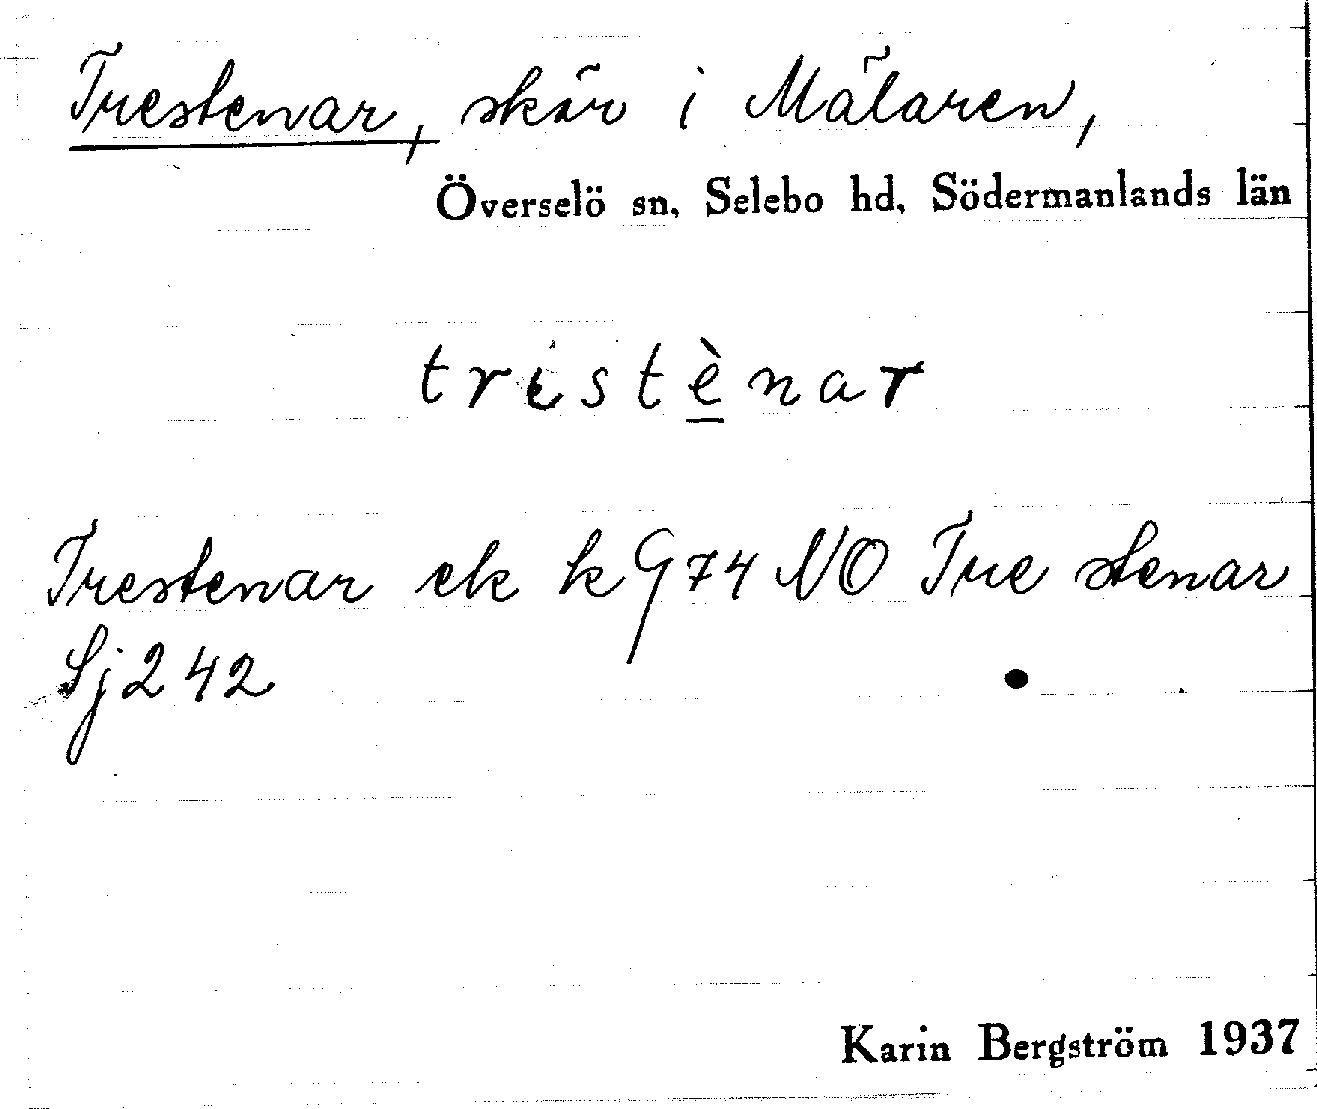 Trestenar, skär i Mälaren,
Överselö sn, Selebo hd, Södermanlands län
tristènar
Trestenar ek k 974 NO Tre stenar
Sj 242
Karin Bergström 1937